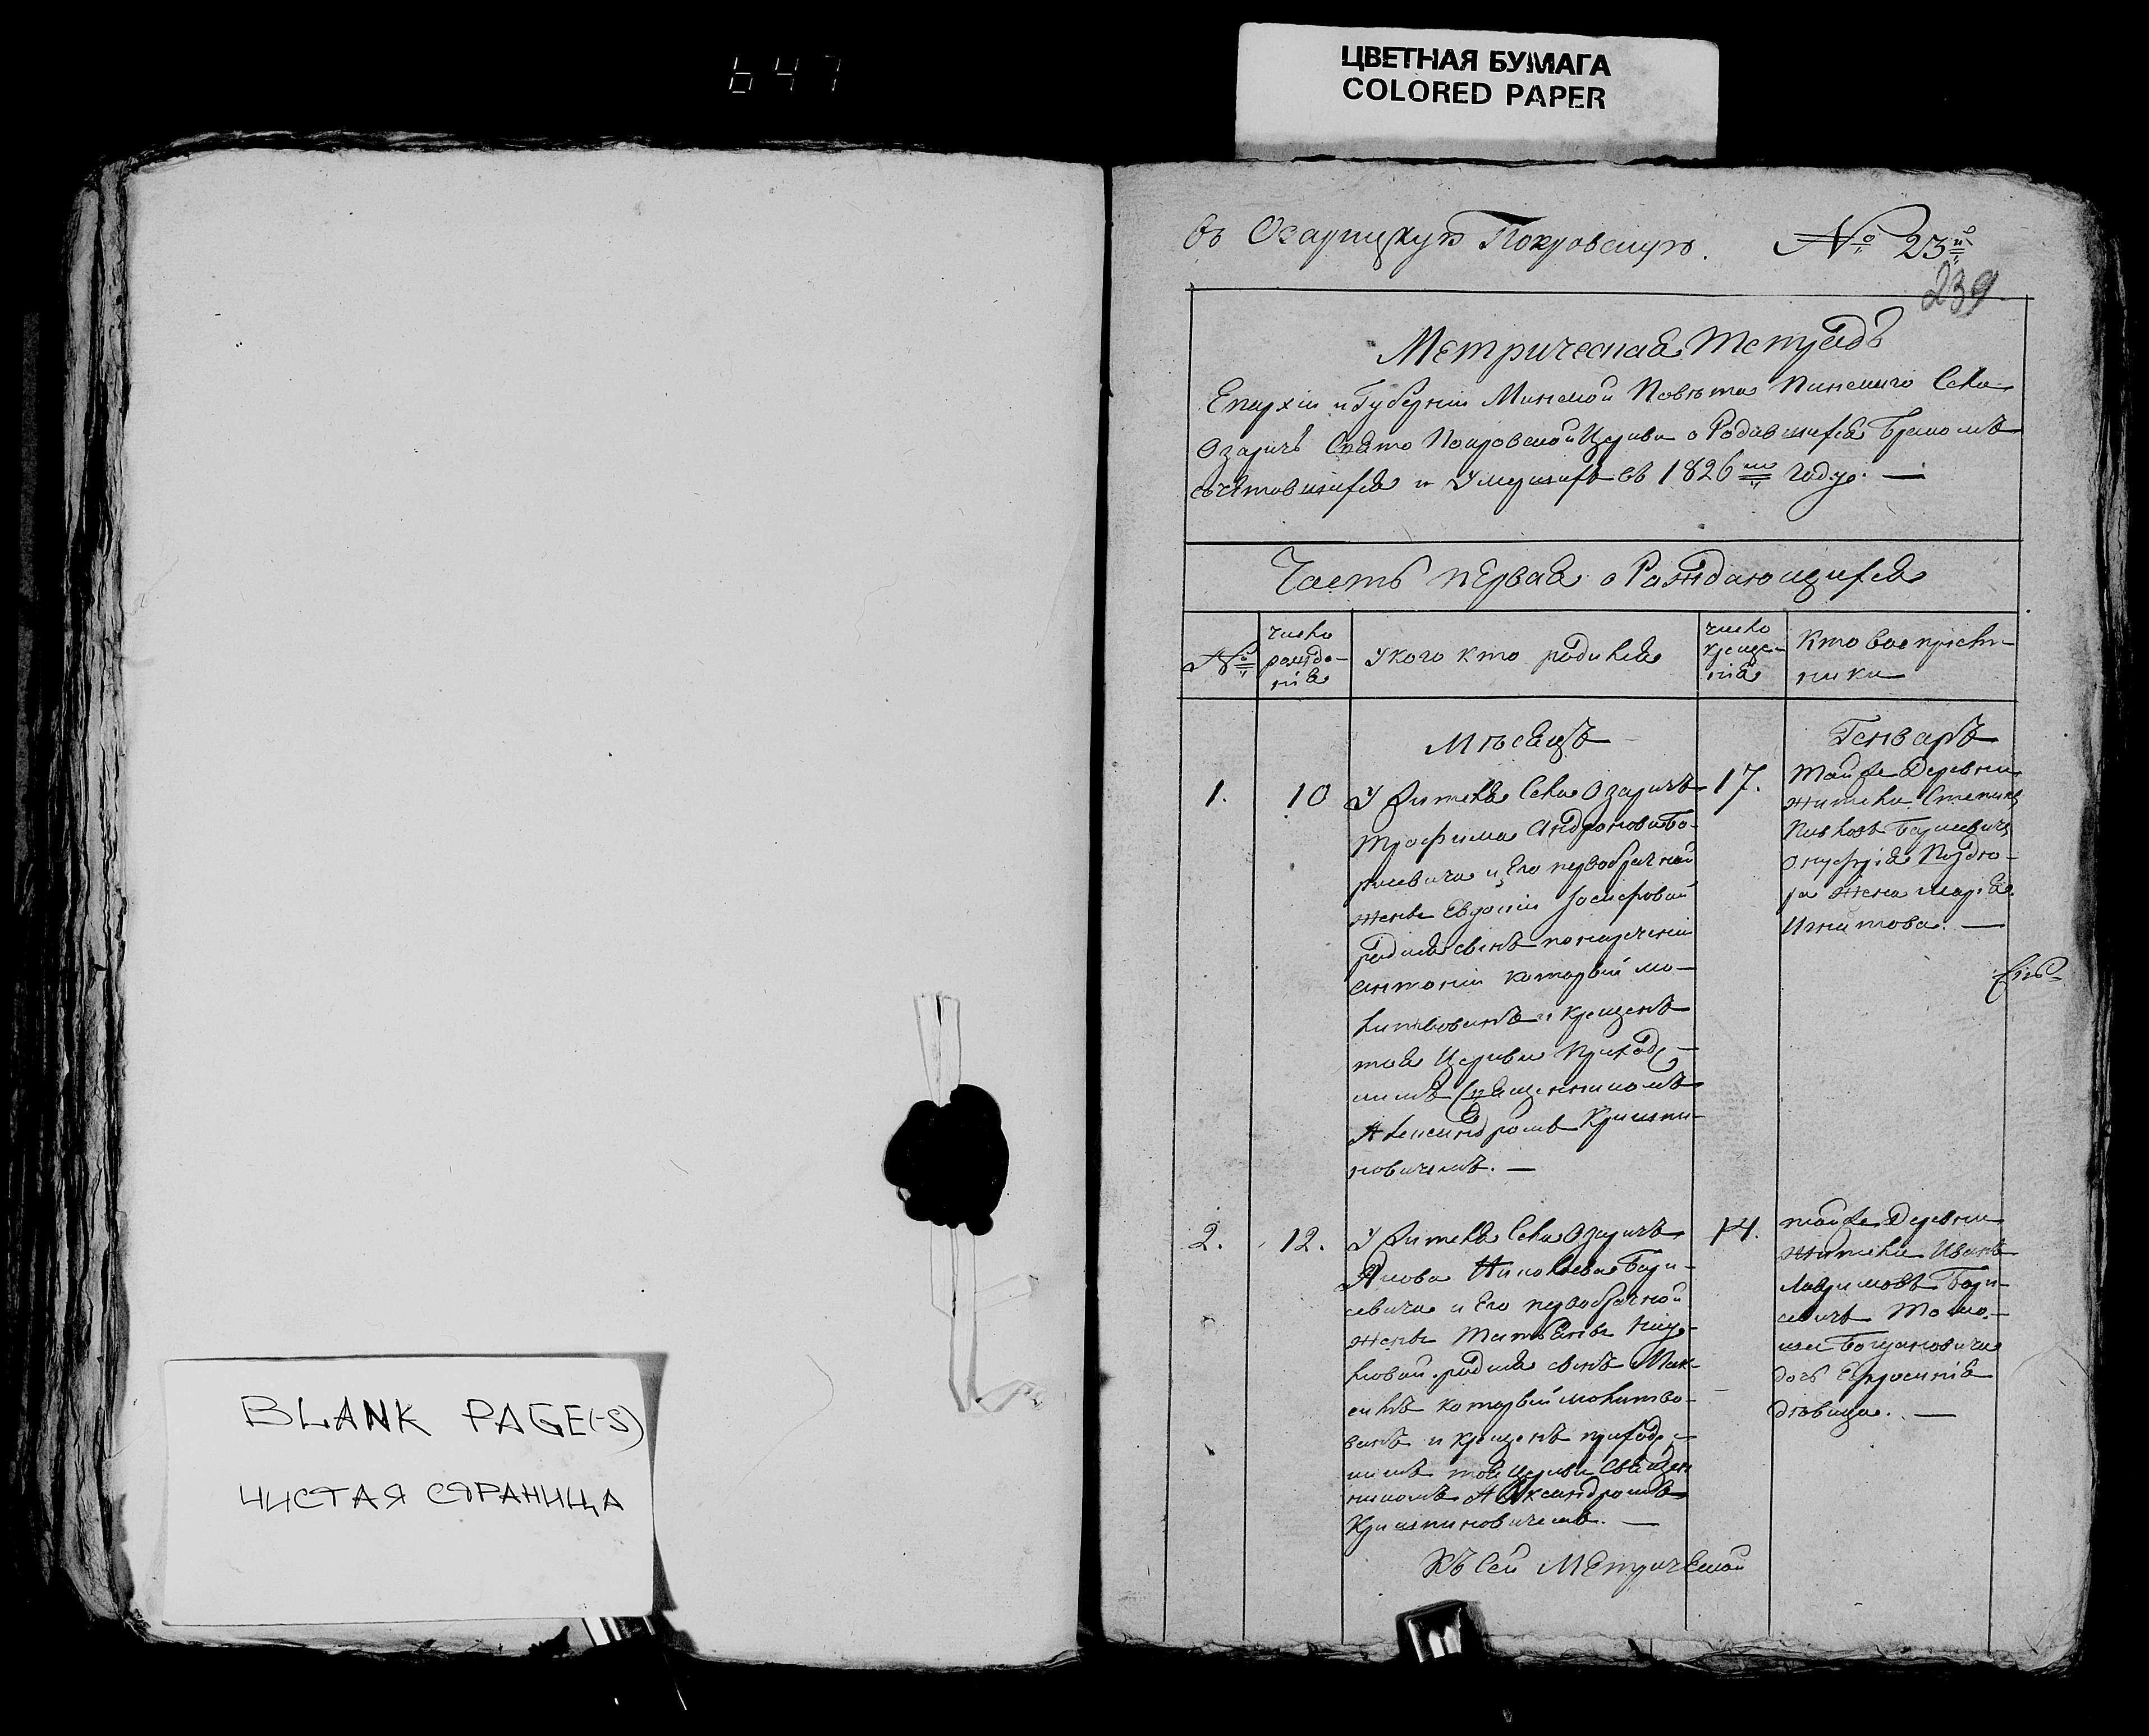 647
ЦВЕТНАЯ БУМАГА
COLORED PAPER
BLANK PAGE(-S)
ЧИСТАЯ СТРАНИЦА
въ Озарицкую Покровскую. № 23й
239
Метрическая тетрадь
Епархіи и Губерніи Минской Повѣта Пинскаго Села
Озаричъ Свято Покровской Церкви о Родившихся Бракомъ
сочетовшихся и Умершихъ въ 1826мъ Году. —
Часть первая о Раждающихся
№
число рожде-
нія
У кого кто родился
число
креще-
нія
Кто воспріем-
ники
Мѣсяцъ
Генварь
1.
10
У жителя Села Озаричъ
Трофима Андронова Бо-
рисевича и Его первобрачной
жены Евдокіи Іосифовой
родился сынъ понареченіи
Антоній который мо-
литвованъ и крещенъ
тоя Церкви Приход-
скимъ Священникомъ
Александромъ Кришпи-
новичемъ. —
17.
тойже Деревни
жители Степанъ
Борисевичъ
Онуфрія
жена Марія
Игнатова. —
2.
12.
У жителя Села Озаричъ
Якова Николаева Бори-
севича и Его первобрачной
жены Татьяны
родился сынъ Мак-
симъ который молитво-
ванъ и крещенъ приход-
скимъ тоя Церкви Священ
никомъ Александромъ
Кришпиновичемъ. —
14.
тойже Деревни
жители Иванъ
Бори-
севичъ
дочь Ефросинія
дѣвица. —
Къ Сей Метрической